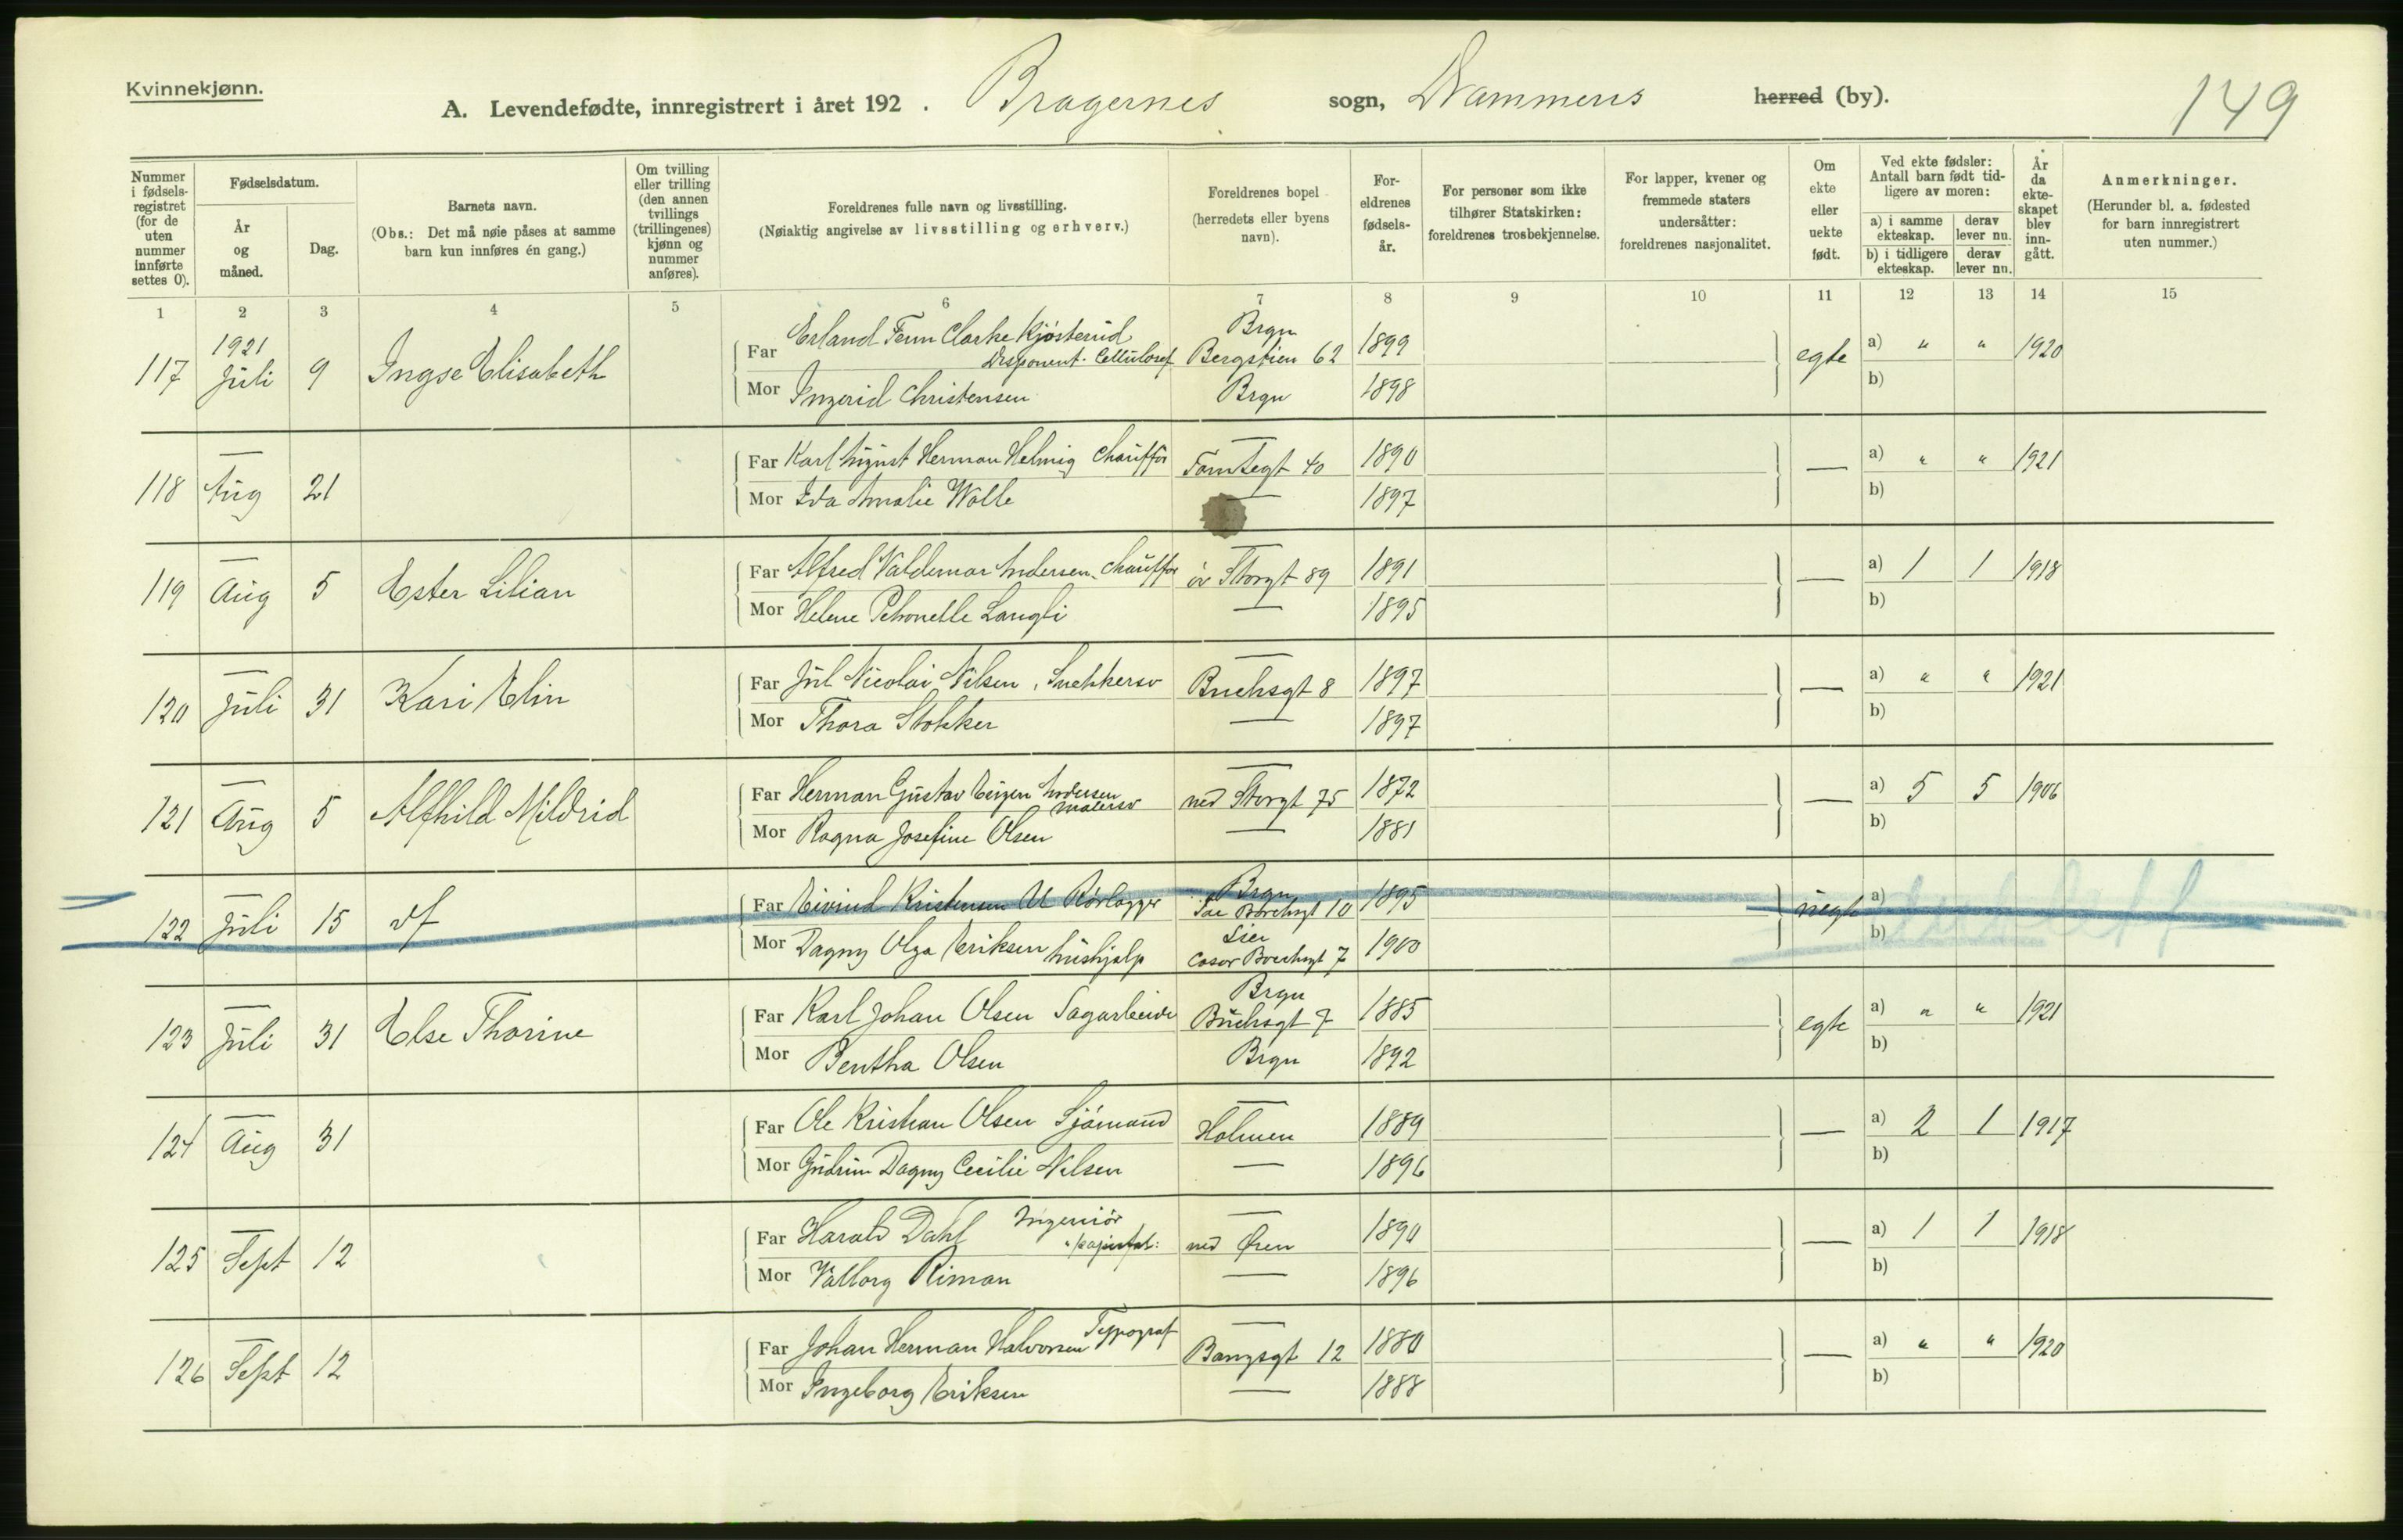 Kvinnekjønn.
A. Levendefødte, innregistrert i året 192 . Bragernes sogn, Drammens herred (by).
149
Nummer i fødselsregistret (for de uten nummer innførte settes 0).
Fødselsdatum.
År og måned.
Dag.
Barnets navn.
(Obs.: Det må nøie påses at samme barn kun innføres én gang.)
Om tvilling eller trilling (den annen tvillings (trillingenes) kjønn og nummer anføres).
Foreldrenes fulle navn og livsstilling.
(Nøiaktig angivelse av livsstilling og erhverv.)
Foreldrenes bopel
(herredets eller byens navn).
For-
eldrenes
fødsels-
år.
For personer som ikke
tilhører Statskirken:
foreldrenes trosbekjennelse.
For lapper, kvener og
fremmede staters
undersåtter:
foreldrenes nasjonalitet.
Om
ekte
eller
uekte
født.
Ved ekte fødsler:
Antall barn født tid-
ligere av moren:
a) i samme ekteskap.
derav lever nu.
b) i tidligere ekteskap.
derav lever nu.
År
da
ekte-
skapet
blev
inn-
gått.
Anmerkninger.
(Herunder bl. a. fødested
for barn innregistrert
uten nummer.)
1 2 3 4 5 6 7 8 9 10 11 12 13 14 15
117 1921 Juli 9 Ingse Elisabeth
Far Erland Fenn Clarke Kjøsterud Disponent. Cellulosef Brgn Bergstien 62 1899 egte a) " " 1920
Mor Ingerid Christensen Brgn 1898 b)
118 — Aug 21
Far Karl August Herman Helmig Chauffør — Tomtegt 40 1890 — a) " " 1921
Mor Eva Amalie Wolle — 1897 b)
119 — Aug 5 Ester Lilian
Far Alfred Valdemar Andersen. Chauffør — øv Storgt 89 1891 — a) 1 1 1918
Mor Helene Petronelle Langli — 1895 b)
120 — Juli 31 Kari Elin
Far Jul Nicolai Nilsen, Snekkersv — Buchsgt 8 1897 — a) " " 1921
Mor Thora Stokker — 1897 b)
121 — Aug 5 Alfhild Mildrid
Far Herman Gustav Eugen Andersen Malersv — ned Storgt 75 1872 — a) 5 5 1906
Mor Ragna Josefine Olsen — 1881 b)
122 — Juli 15 df
Far Eivind Kristensen Rørlegger Brgn 10 1895 uegte a)
Mor Dagny Olga Eriksen hushjelp Lier 7 1900 b)
123 — Juli 31 Else Thorine
Far Karl Johan Olsen Sagarbeider Brgn Buchsgt 7 1885 egte a) " " 1921
Mor Bentha Olsen Brgn 1892 b)
124 — Aug 31
Far Ole Kristian Olsen Sjømand — Holmen 1889 — a) 2 1 1917
Mor Gudrun Dagny Cecilie Nilsen — 1896 b)
125 — Sept 12
Far Harald Dahl Ingeniør — ned Øren 1890 — a) 1 1 1918
Mor Valborg Riman — 1896 b)
126 — Sept 12
Far Johan Herman Halvorsen Typograf — Bangsgt 12 1880 — a) " " 1920
Mor Ingeborg Eriksen — 1888 b)